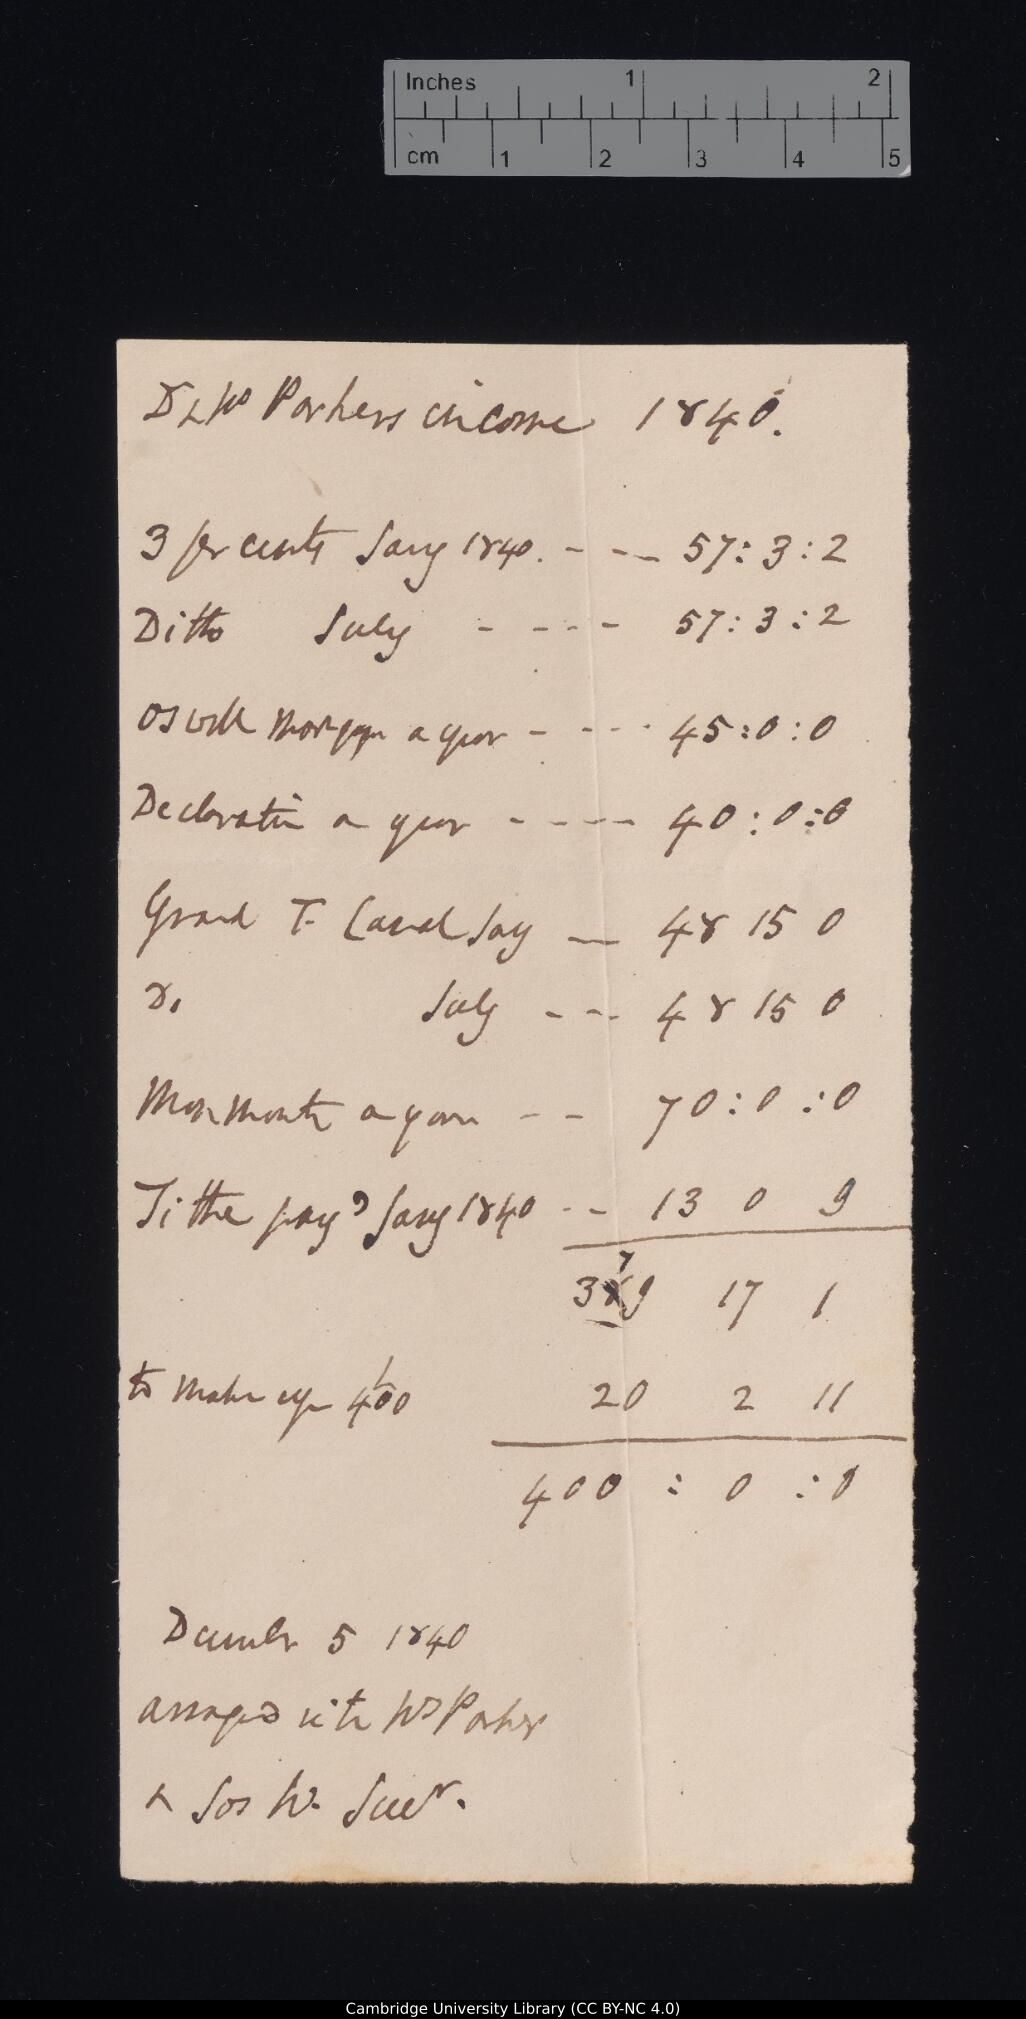 Inches 1 2
cm 1 2 3 4 5
Dr & Mrs Parkers income 1840.
3 per cents Jany 1840. - - - 57 : 3 : 2
Ditto July - - - - 57 : 3 : 2
a year - - - - 45 : 0 : 0
Declaration a year - - - - 40 : 0 : 0
Grand T. Canal Jay — 48 15 0
Do July - - - 48 15 0
Monmouth a year - - 70 : 0 : 0
Tithe payd Jany 1840 - - 13 0 9
379 17 1
to make up £400 20 2 11
400 : 0 : 0
December 5 1840
arranged with Mrs Parker
& Jos H.
Cambridge University Library (CC BY-NC 4.0)